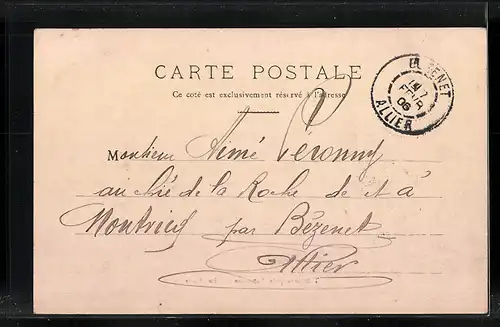 CARTE POSTALE
Ce coté est exclusivement réservé à l'adresse
BÉZENET
FEVR
06
ALLIER
Monsieur Aimé
au de la Roche de et à
par Bézenet
Allier